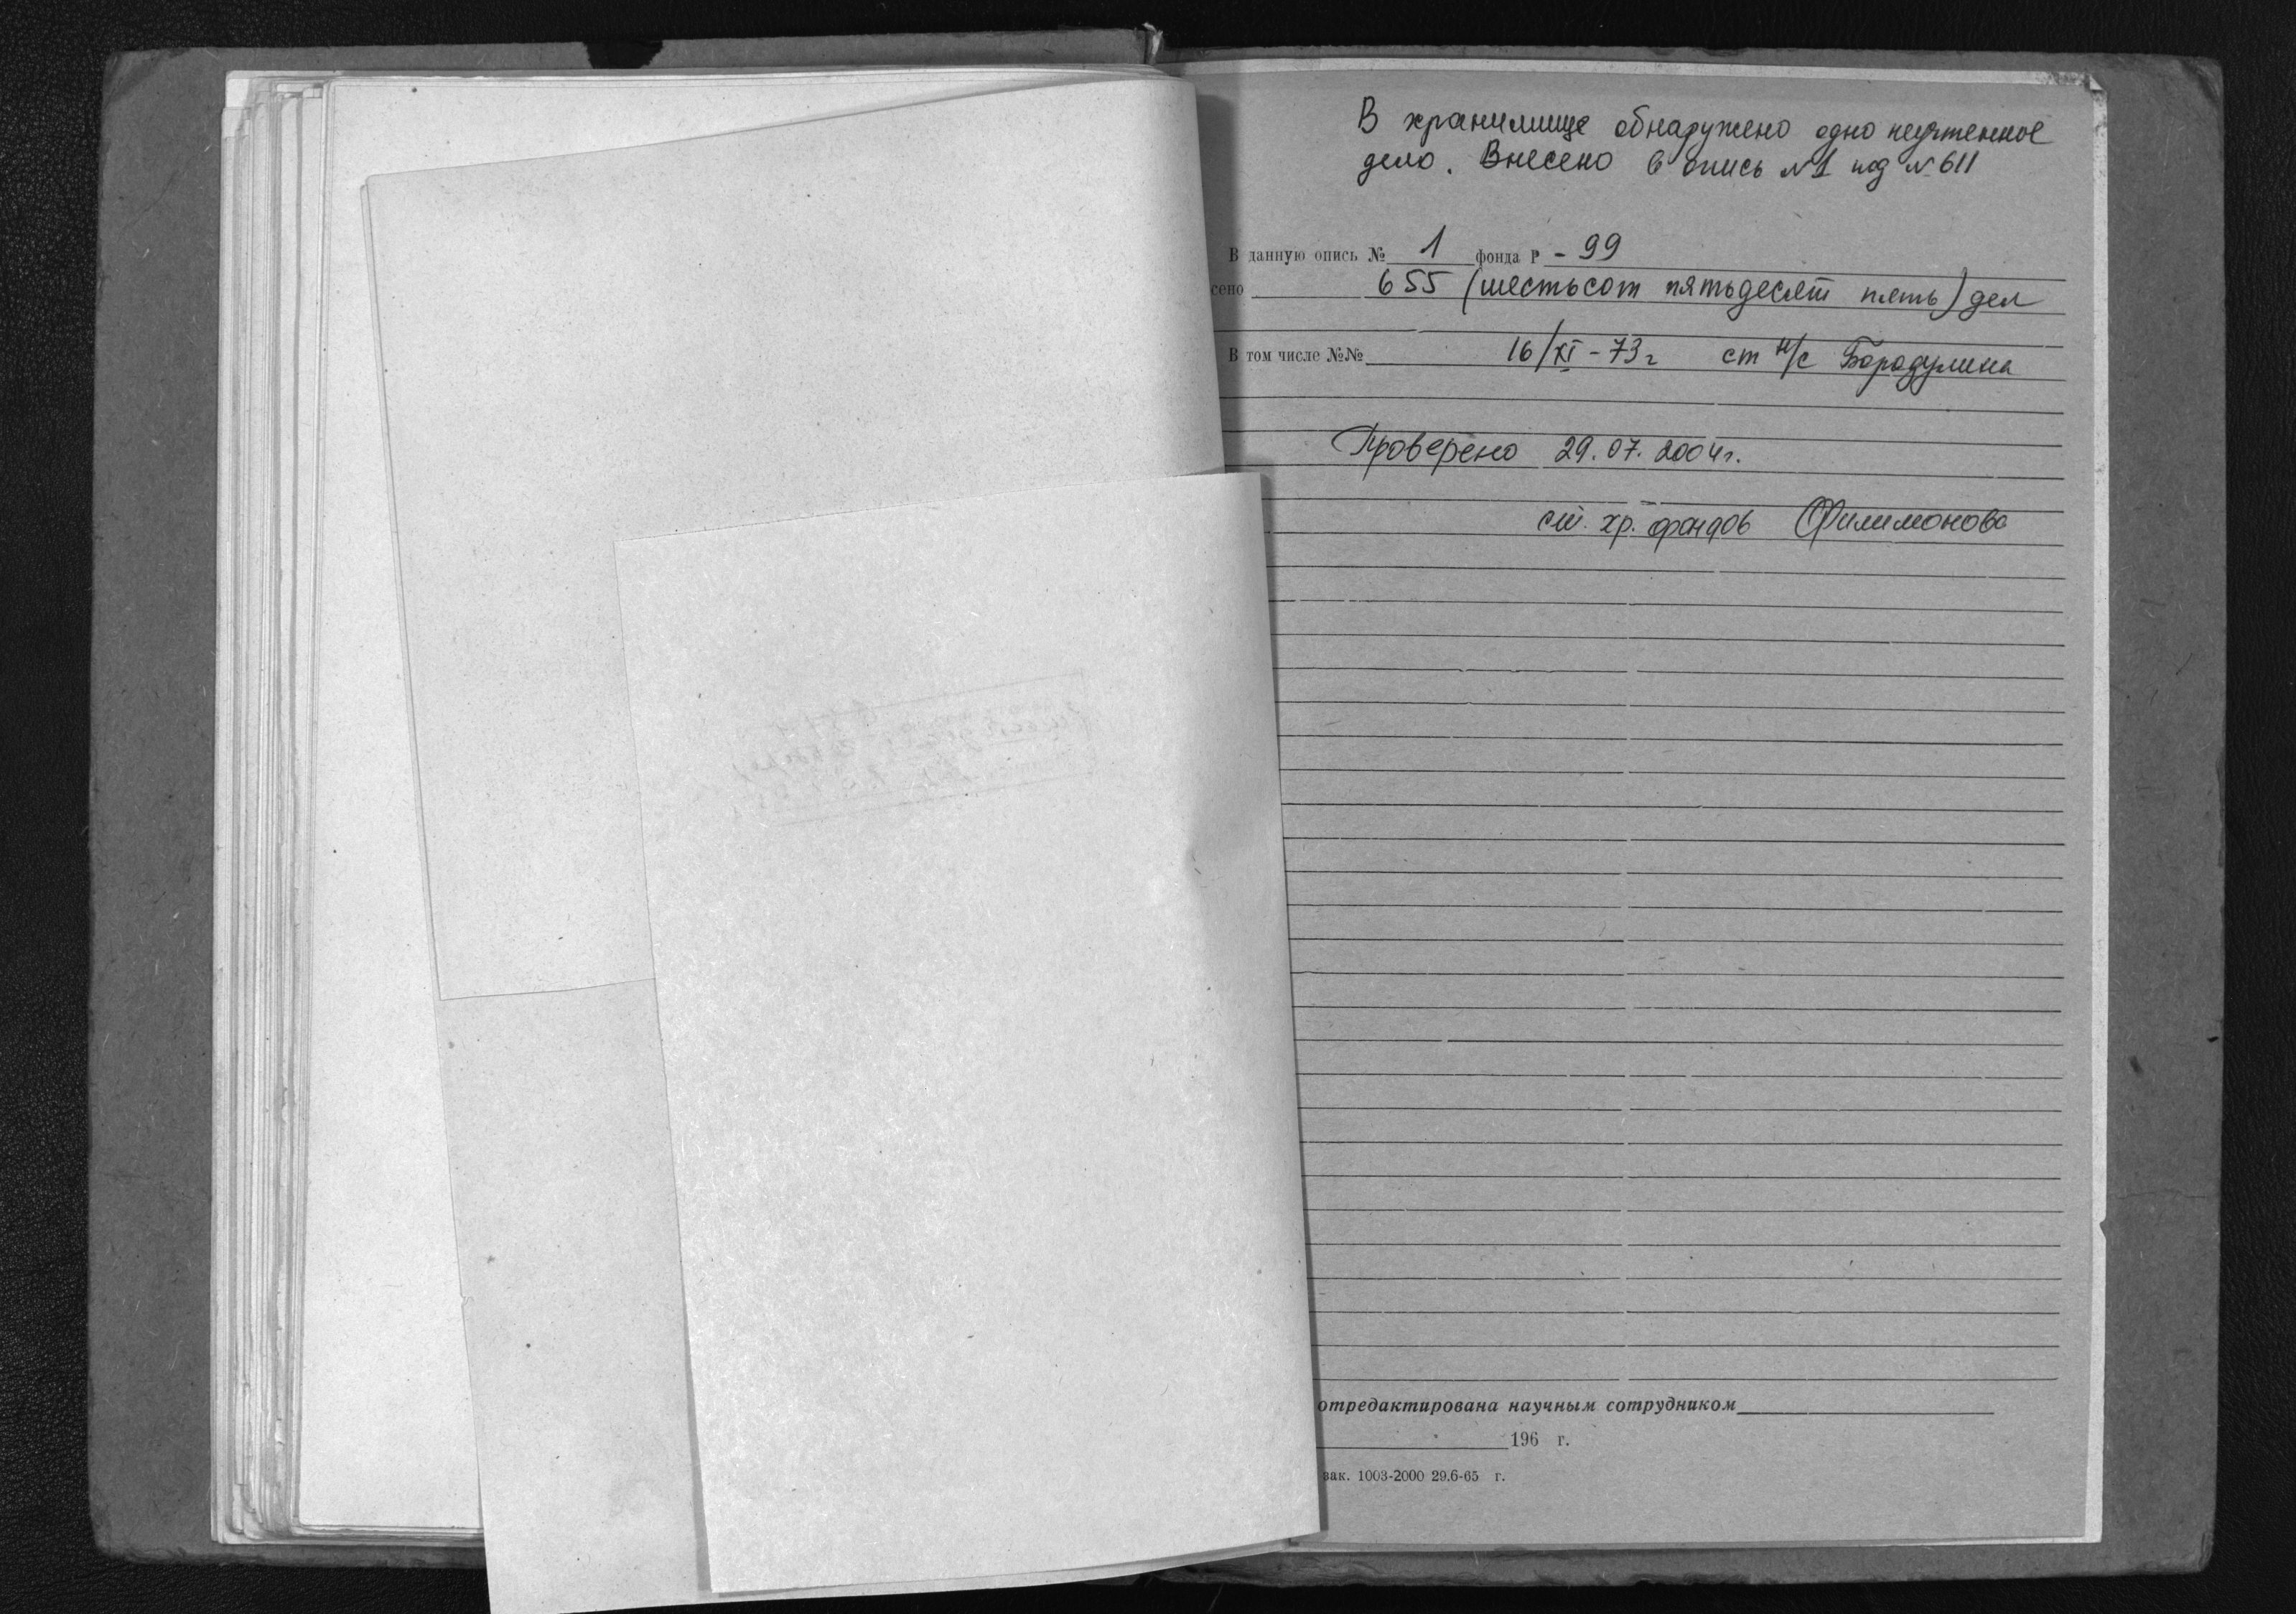 В хранилище обнаружено одно неучтенное
дело. Внесено в опись №1 под №611
В данную опись № 1 фонда Р - 99
сено 655 (шестьсот пятьдесят пять) дел
В том числе №№ 16/XI - 73 г ст н/с Бородулина
Проверено 29.07.2004г.
ст. хр. фондов Филимонова
отредактирована научным сотрудником
196 г.
зак. 1003-2000 29.6-65 г.